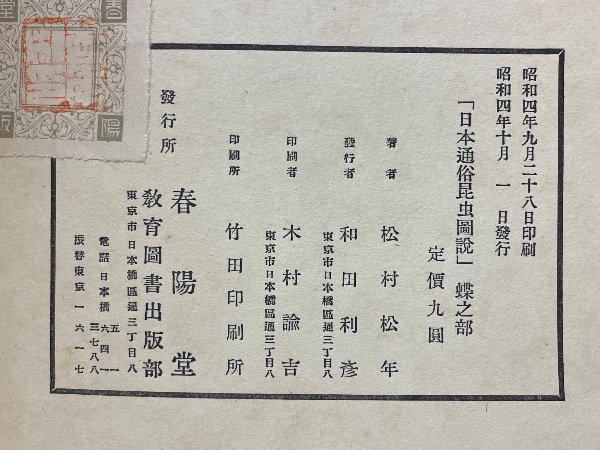 昭和四年九月二十八日印刷
昭和四年十月一日發行
「日本通俗昆虫圖說」蝶之部
定價九圓
著者 松村松年
發行者 和田利彥
東京市日本橋區通三丁目八
印刷者 木村諭吉
東京市日本橋區通三丁目八
印刷所 竹田印刷所
發行所 春陽堂
教育圖書出版部
東京市日本橋區通三丁目八
電話日本橋 五一
六四一
三七八八
振替東京一六一七
春
堂
陽
版